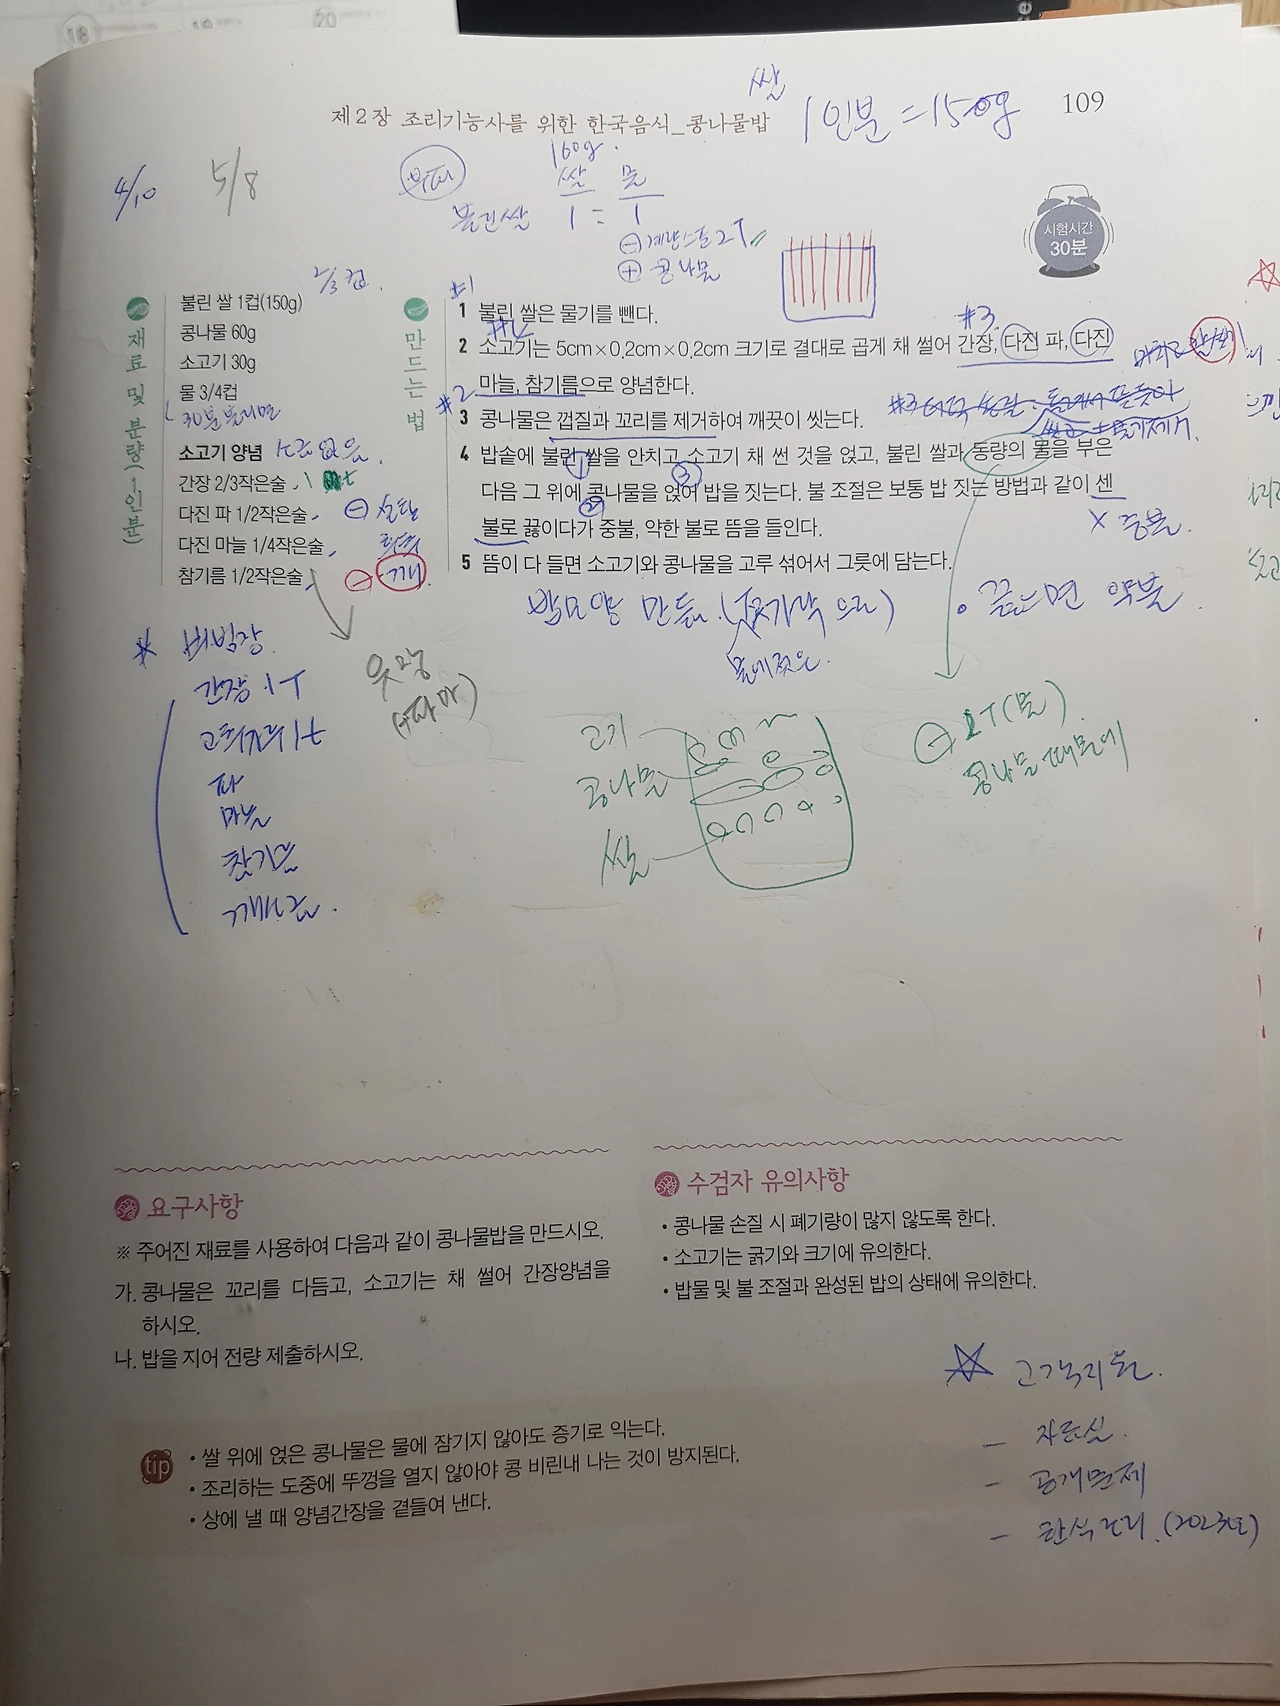 18 19 20
쌀
제2장 조리기능사를 위한 한국음식_콩나물밥
1인분 = 150g
109
4/10 5/8
부피
160g
쌀 물
불린쌀 1 = 1
⊖ 계량스푼 2T
⊕ 콩나물
시험시간
30분
재료 및 분량(1인분)
2/3컵
불린 쌀 1컵(150g)
콩나물 60g
소고기 30g
물 3/4컵
30분 불리면
소고기 양념
간장 2/3작은술
다진 파 1/2작은술
⊖ 설탕
다진 마늘 1/4작은술
후추
참기름 1/2작은술
⊖ 깨
만드는 법
#1
1 불린 쌀은 물기를 뺀다.
#3
2 소고기는 5cm×0.2cm×0.2cm 크기로 결대로 곱게 채 썰어 간장, 다진 파, 다진
마늘, 참기름으로 양념한다.
#2
3 콩나물은 껍질과 꼬리를 제거하여 깨끗이 씻는다.
4 밥솥에 불린 쌀을 안치고 소고기 채 썬 것을 얹고, 불린 쌀과 동량의 물을 부은
① ③
다음 그 위에 콩나물을 얹어 밥을 짓는다. 불 조절은 보통 밥 짓는 방법과 같이 센
②
불로 끓이다가 중불, 약한 불로 뜸을 들인다.
X 중불.
5 뜸이 다 들면 소고기와 콩나물을 고루 섞어서 그릇에 담는다.
밥모양 만듦.(젓가락으로)
물에 젖은.
• 끓으면 약불
* 비빔장
간장 1T
고춧가루 1t
파
마늘
참기름
깨소금.
고기
콩나물
쌀
⊖ 2T(물)
콩나물 때문에
요구사항
※ 주어진 재료를 사용하여 다음과 같이 콩나물밥을 만드시오.
가. 콩나물은 꼬리를 다듬고, 소고기는 채 썰어 간장양념을
하시오.
나. 밥을 지어 전량 제출하시오.
수검자 유의사항
• 콩나물 손질 시 폐기량이 많지 않도록 한다.
• 소고기는 굵기와 크기에 유의한다.
• 밥물 및 불 조절과 완성된 밥의 상태에 유의한다.
tip
• 쌀 위에 얹은 콩나물은 물에 잠기지 않아도 증기로 익는다.
• 조리하는 도중에 뚜껑을 열지 않아야 콩 비린내 나는 것이 방지된다.
• 상에 낼 때 양념간장을 곁들여 낸다.
☆ 고객지원.
– 자료실.
– 공개문제
– 한식조리.